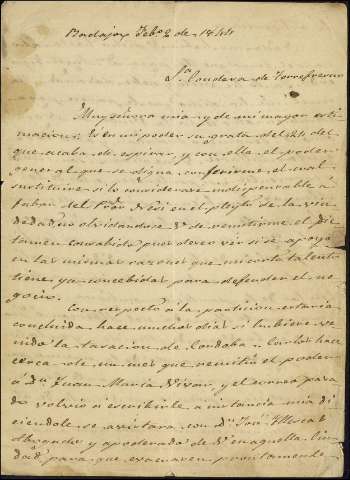 Badajoz Feb.º 2 de 1844
S.ra Condesa de Torrefresno
Muy señora mia y de mi mayor esti
macion: en mi poder su grata del 24 del
que acaba de espirar, y con ella el poder
general que se digna conferirme el cual
sustituiré si lo considerase indispensable á
favor del en el pleyto de la viu
dedad no olvidandose V. de remitirme el dic
tamen consabido, pues deseo ver si se apoya
en las mismas razones que mi corto talento
tiene ya concebidas para defender el ne
gocio.
Con respecto á la particion estaria
concluida hace muchos dias si hubiere ve
nido la tasacion de Cordoba. Carlos hace
cerca de un mes que remitió el poder
á Dn Juan Maria Vivar, y el correo pasa
do volvió á escribirle a instancia mia di
ciendole se avistara con Dn José Illescas
Abogado y apoderado de V. en aquella Ciu
dad para que evacuasen prontamente